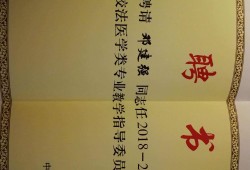 聘书
聘请 邓建强 同志任2018－2
校法医学类专业教学指导委员
中